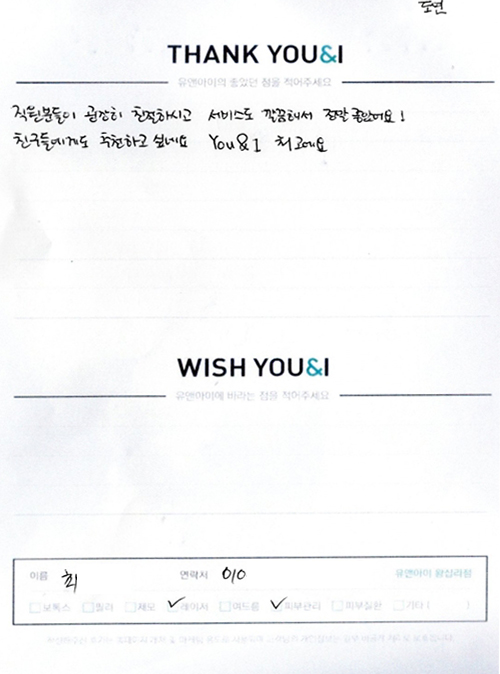 도연
THANK YOU&I
유앤아이의 좋았던 점을 적어주세요
직원분들이 굉장히 친절하시고 서비스도 깔끔해서 정말 좋았어요!
친구들에게도 추천하고 싶네요 You&I 최고예요
WISH YOU&I
유앤아이에 바라는 점을 적어주세요
이름 최 연락처 010 유앤아이 왕십리점
보톡스 필러 제모 레이저 여드름 피부관리 피부질환 기타 ( )